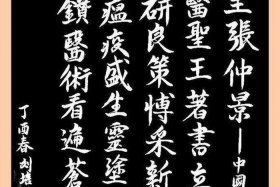 聖張仲景—中國
醫聖王著書立
研良策博采新
瘟疫盛生靈塗
鑽醫術看遍蒼
丁酉春刘培